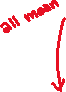 all mean